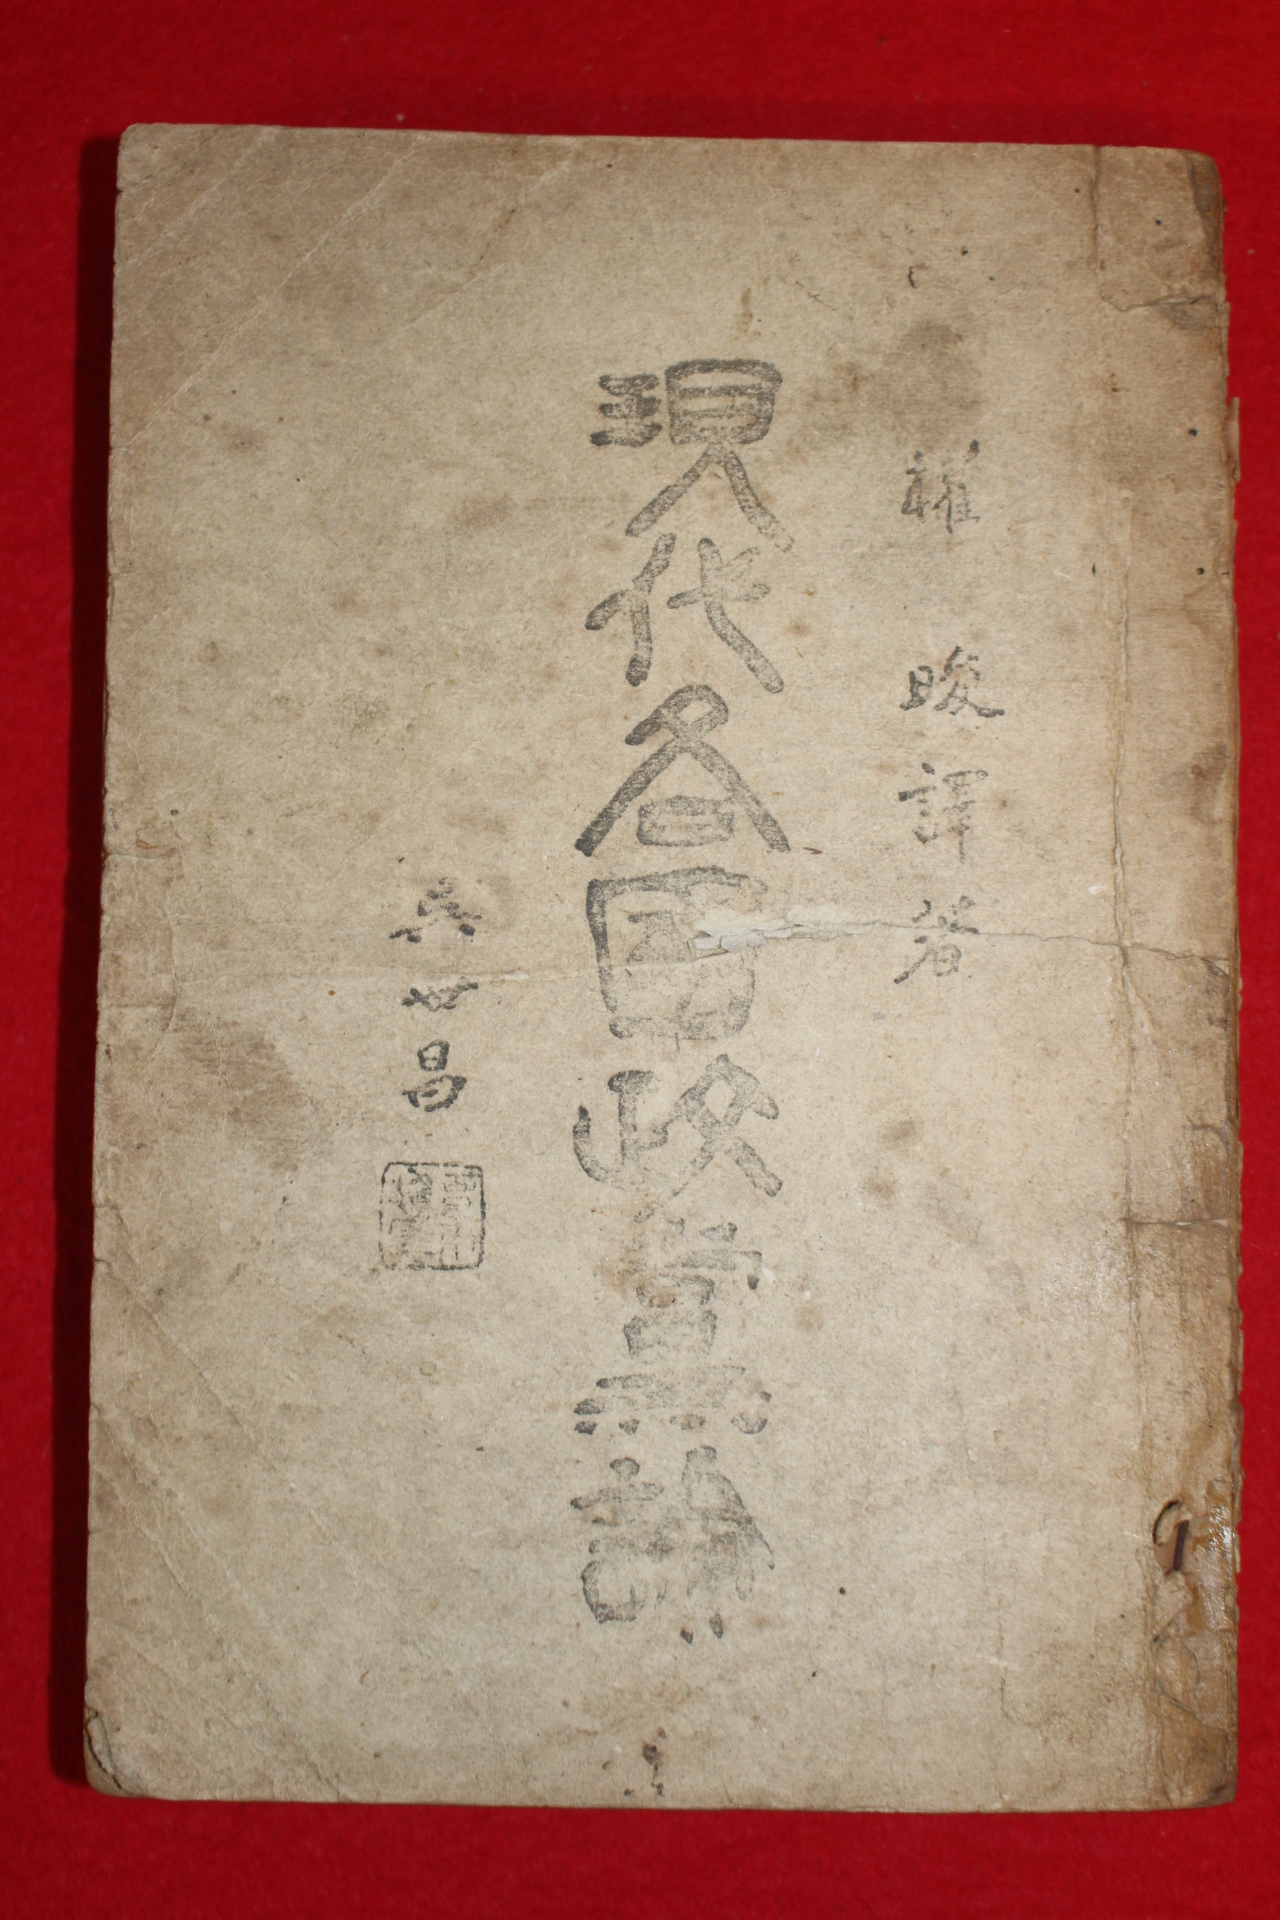 權 晙 譯 著
現代各國政黨誌
吳世昌